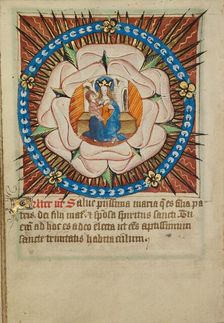 Salue piissima maria q̄ es filia pa
tris. dei filij mat̄ et spōsa spiritus sancti. Tu
ad hoc es a deo electa ut eēs aptissimum
sancte trinitatis habitaculum.